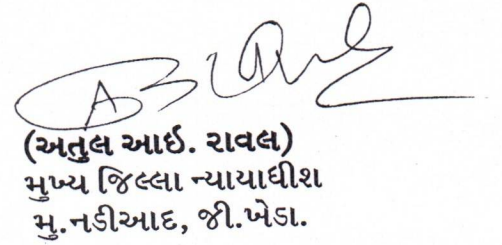 (અતુલ આઇ. રાવલ)
મુખ્ય જિલ્લા ન્યાયાધીશ
મુ.નડીઆદ, જી.ખેડા.